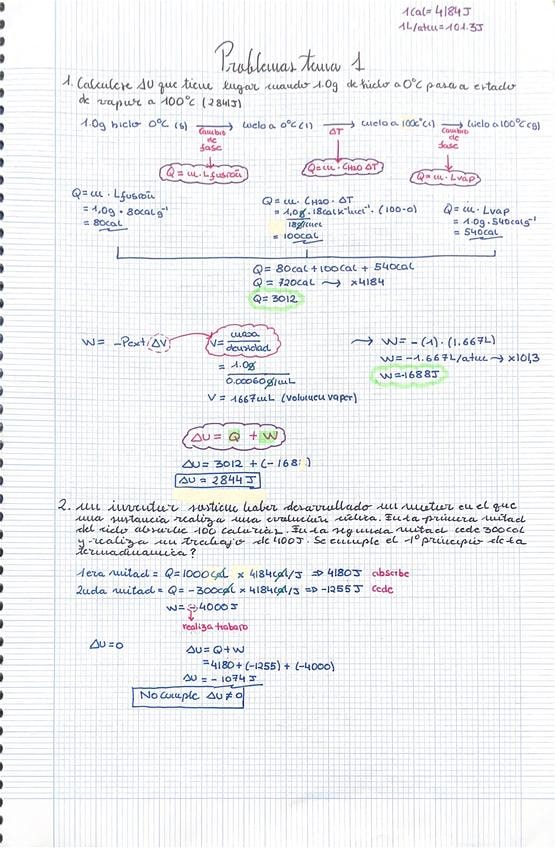 1Cal = 4184J
1L/atm = 101.3J
Problemas tema 1
1. Calculese ΔU que tiene lugar cuando 1.0g de hielo a 0°C pasa a estado
de vapor a 100°C (2841J)
1.0g hielo 0°C (s) → hielo a 0°C (l) → hielo a 100°C (l) → hielo a 100°C (g)
Cambio de fase ΔT cambio de fase
Q = m · Lfusión Q = m · CH2O ΔT Q = m · Lvap
Q = m · Lfusión Q = m · CH2O · ΔT Q = m · Lvap
= 1.0g · 80cal g⁻¹ = 1.0g · 18cal k⁻¹mol⁻¹ · (100-0) = 1.0g · 540cal g⁻¹
= 80cal 18g/mol = 540cal
= 100cal
Q = 80cal + 100cal + 540cal
Q = 720cal → x4184
Q = 3012
W = -Pext ΔV V = masa / densidad → W = -(1) · (1.667L)
= 1.0g W = -1.667L/atm → x101,3
0.00060g/mL W = -1688J
V = 1667mL (volumen vapor)
ΔU = Q + W
ΔU = 3012 + (-168 )
ΔU = 2844J
2. un inventor sostiene haber desarrollado un motor en el que
una sustancia realiza una evolución cíclica. En la primera mitad
del ciclo absorbe 100 calorías. En la segunda mitad cede 300cal
y realiza un trabajo de 400J. Se cumple el 1º principio de la
termodinamica?
1era mitad = Q = 1000cal x 4184cal/J ⇒ 4180J absorbe
2nda mitad = Q = -300cal x 4184cal/J ⇒ -1255J cede
W = -4000J
realiza trabajo
ΔU = 0 ΔU = Q + W
= 4180 + (-1255) + (-4000)
ΔU = -1074J
No cumple ΔU ≠ 0